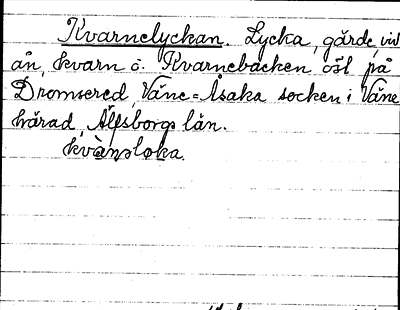 Kvarnelyckan. Lycka, gärde, vid
ån, kvarn o. Kvarnebacken öst på
Dromsered, Väne-Åsaka socken i Väne
härad, Älfsborgs län.